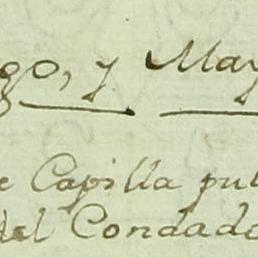 go, y May
e Capilla pu
del Condado